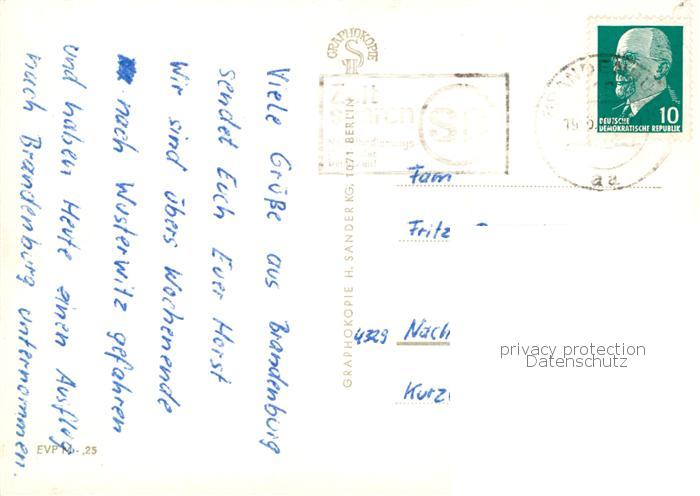 Viele Grüße aus Brandenburg
sendet Euch Euer Horst
Wir sind übers Wochenende
nach Wusterwitz gefahren
und haben Heute einen Ausflug
nach Brandenburg unternommen.
EVP -,25
GRAPHOKOPIE
H S
GRAPHOKOPIE H. SANDER KG, 1071 BERLIN
DEUTSCHE
DEMOKRATISCHE REPUBLIK
10
aa
Fam
Fritz
4329 Nach
Kurz
privacy protection
Datenschutz